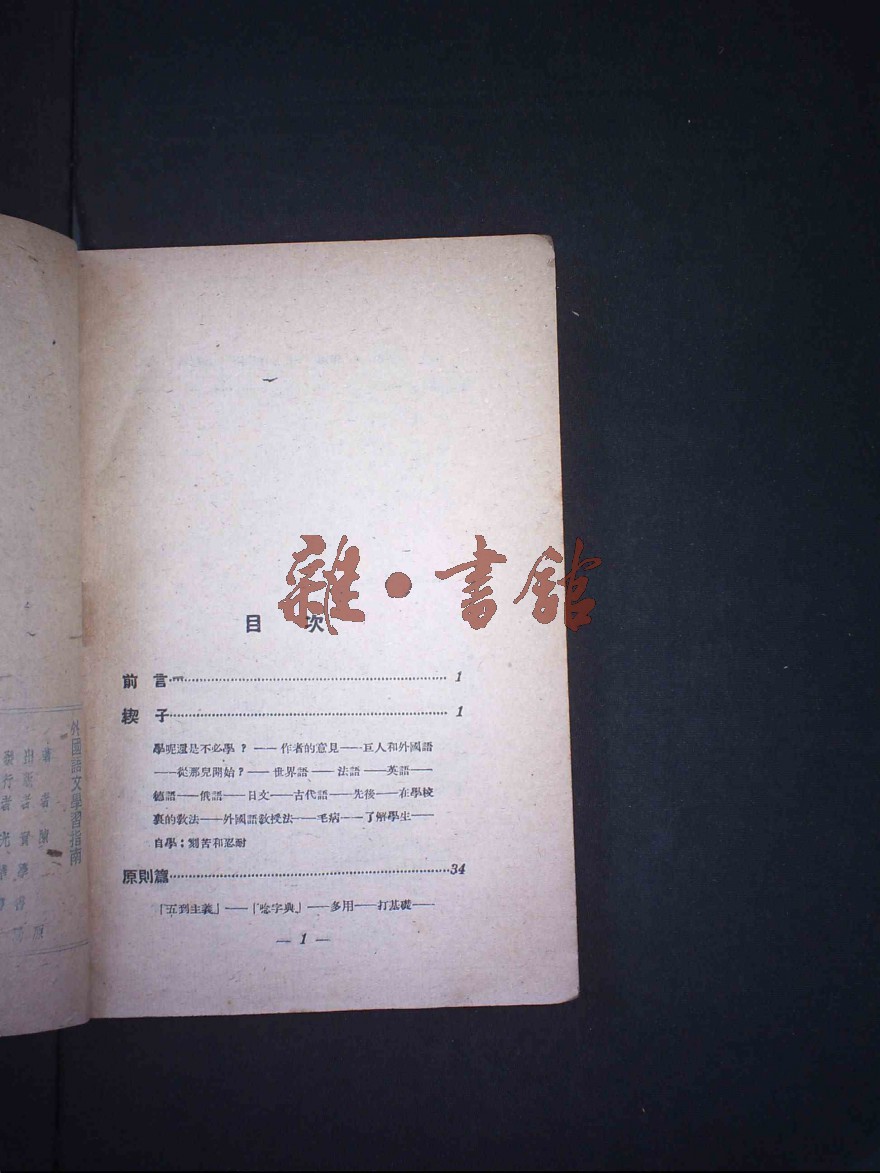 雜·書舘
目 次
前 言……1
楔 子……1
學呢還是不必學？——作者的意見——巨人和外國語
——從那兒開始？——世界語——法語——英語——
德語——俄語——日文——古代語——先後——在學校
裏的敎法——外國語敎授法——毛病——了解學生——
自學：刻苦和忍耐
原則篇……34
「五到主義」——「唸字典」——多用——打基礎——
— 1 —
外國語文學習指南
著者
出版者
發行者 光